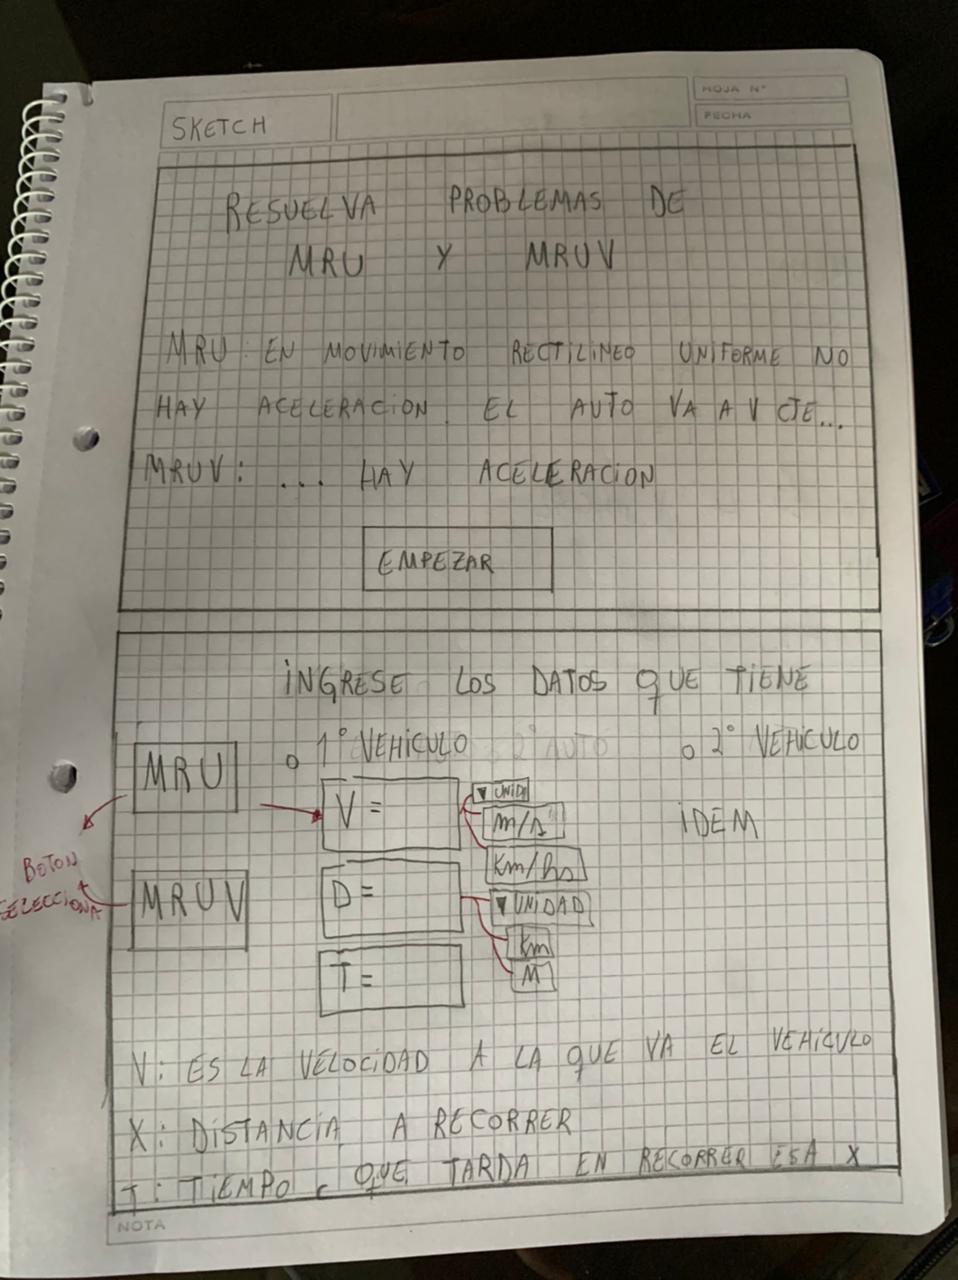 HOJA N°
SKETCH
FECHA
RESUELVA PROBLEMAS DE
MRU Y MRUV
MRU: EN MOVIMIENTO RECTILINEO UNIFORME NO
HAY ACELERACION. EL AUTO VA A V CTE...
MRUV: ... HAY ACELERACION
EMPEZAR
INGRESE LOS DATOS QUE TIENE
1° VEHICULO 2° AUTO 2° VEHICULO
MRU
V =
▼ UNID
m/s
IDEM
Km/hs
BOTON
SELECCIONA
MRUV
D =
▼ UNIDAD
Km
M
T =
V: ES LA VELOCIDAD A LA QUE VA EL VEHICULO
X: DISTANCIA A RECORRER
T: TIEMPO QUE TARDA EN RECORRER ESA X
NOTA